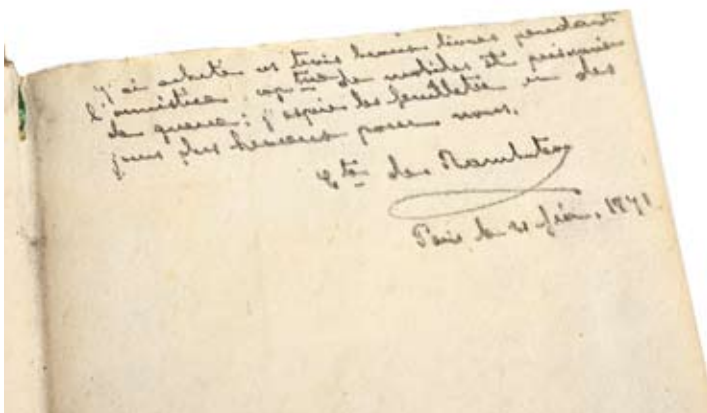 J'ai acheté ces trois beaux livres pendant
l'armistice, cap^tne de mobiles et prisonnier
de guerre : j'espère les feuilleter en des
jours plus heureux pour nous.
C^te de Rambuteau
Paris le 21 févr. 1871